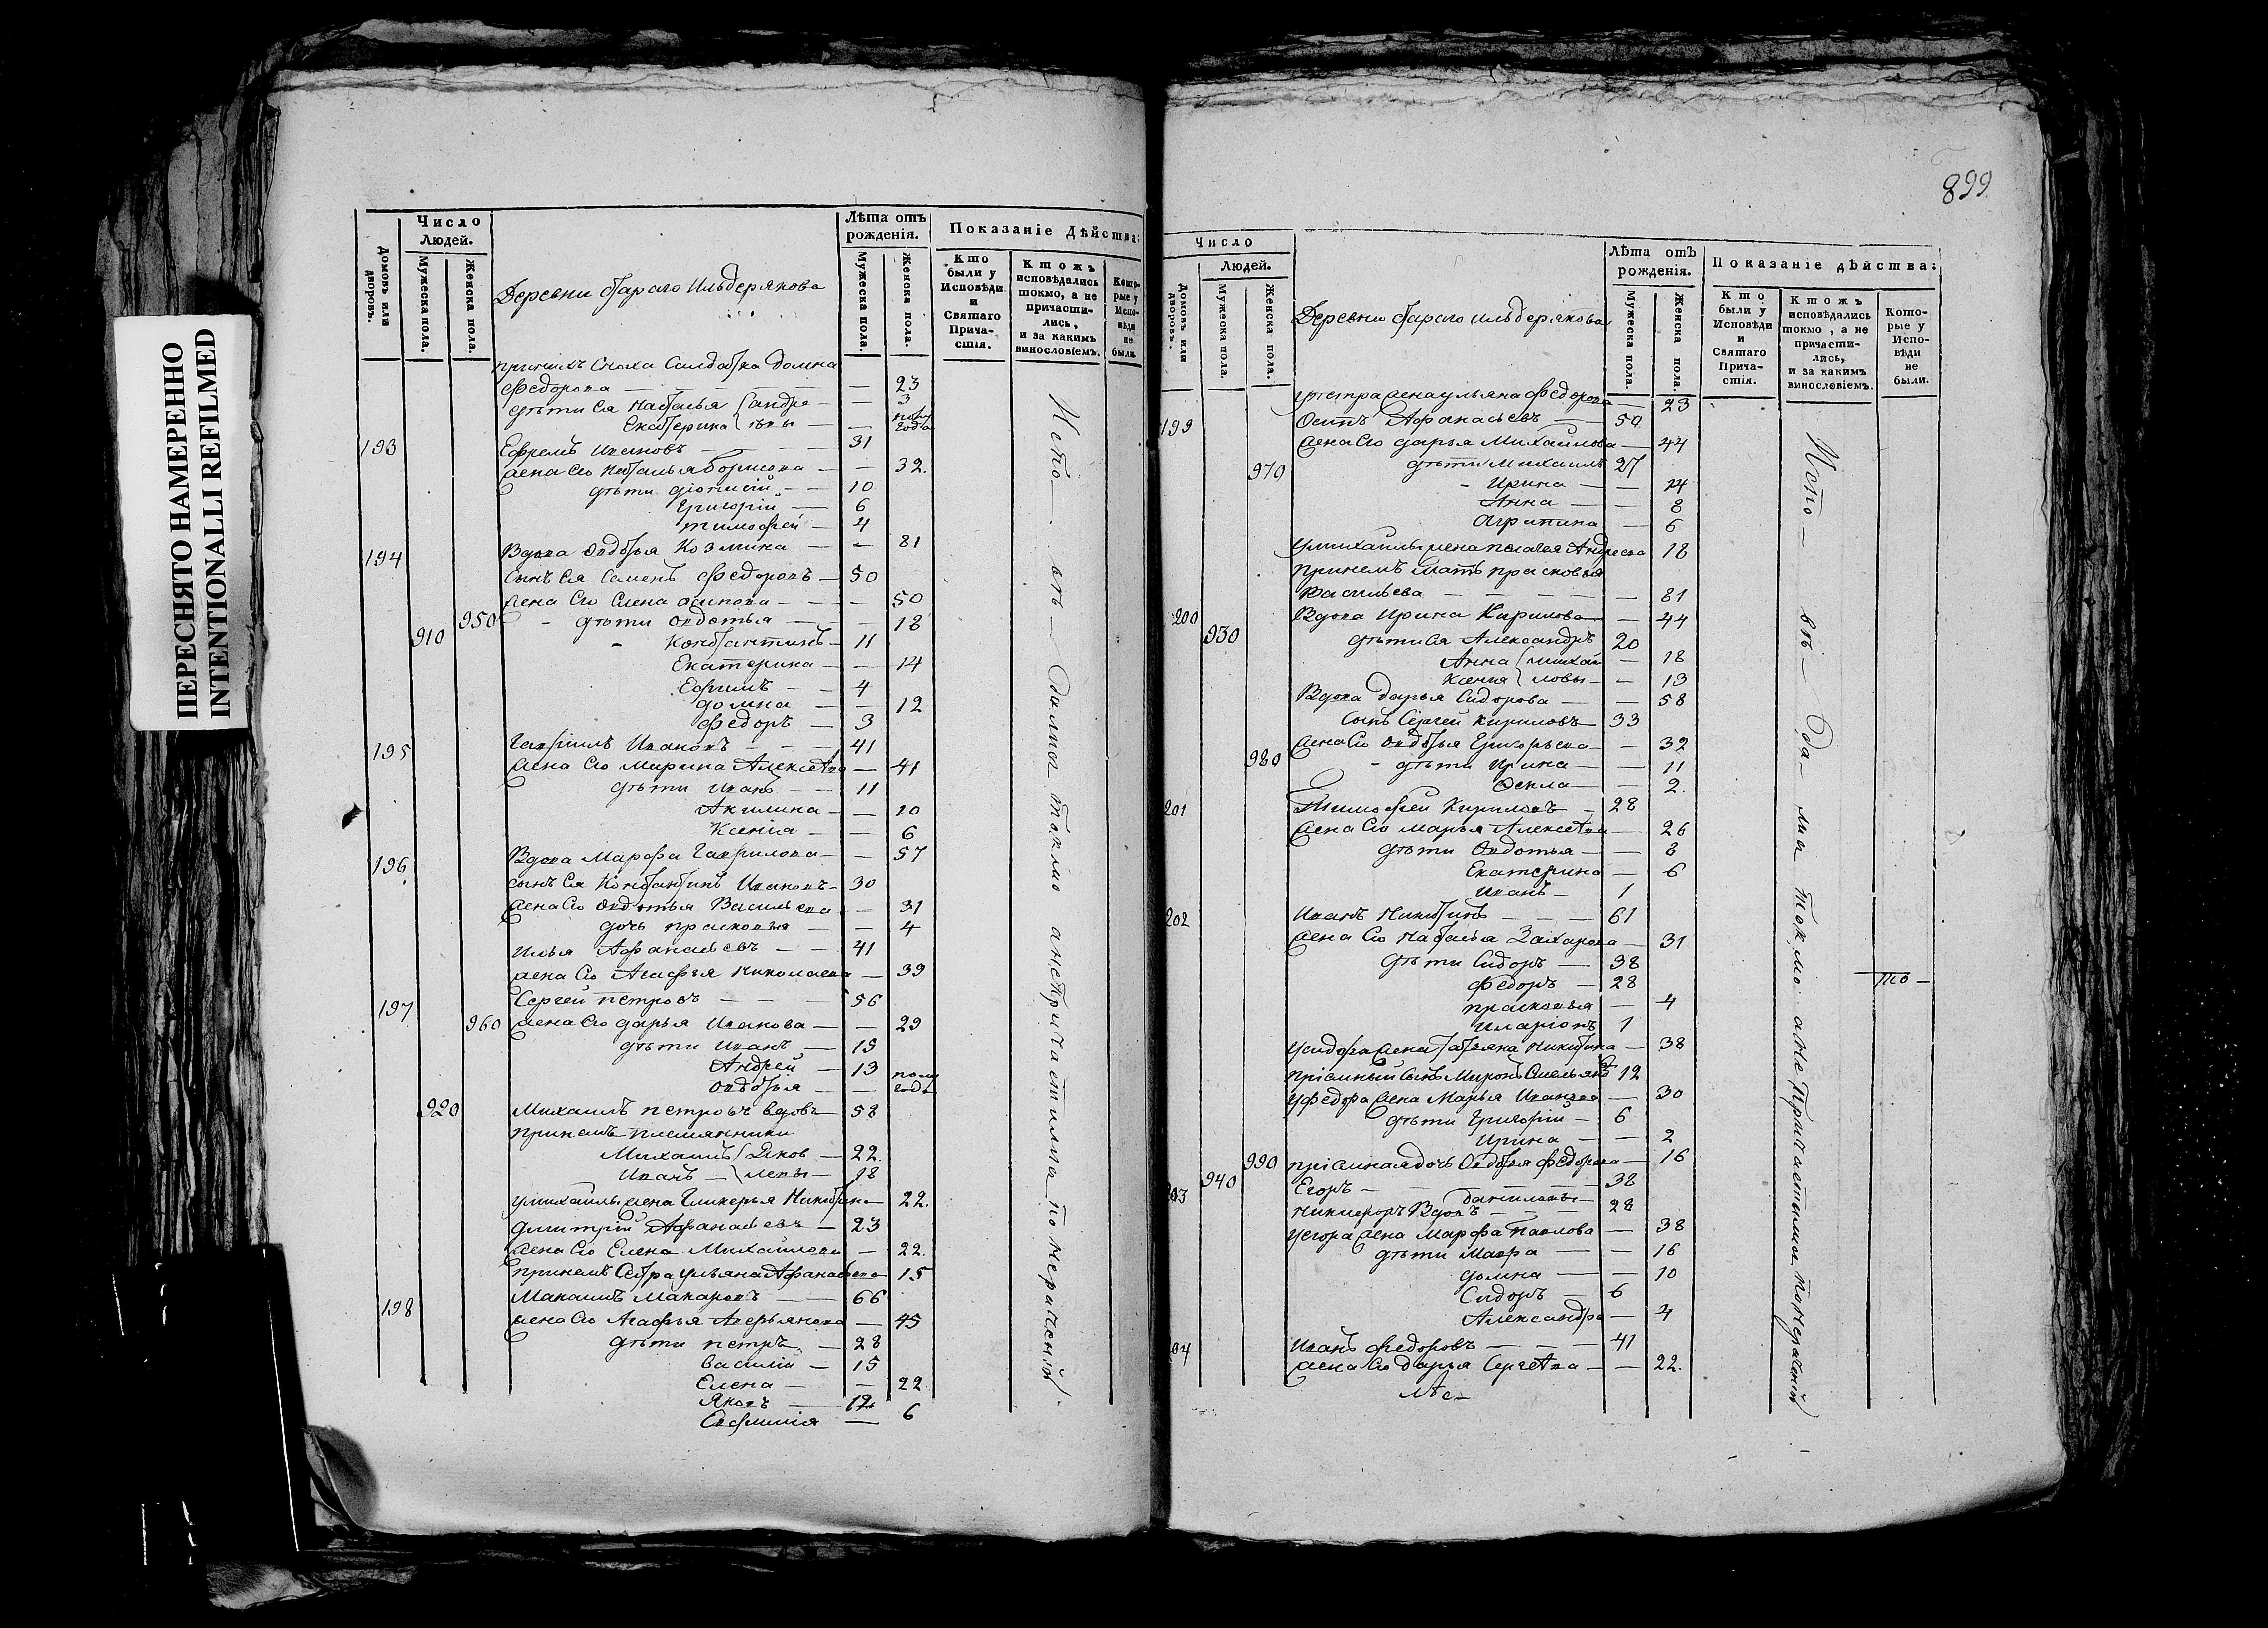 ПЕРЕСНЯТО НАМЕРЕННО
INTENTIONALLI REFILMED
Домовъ или дворовъ.
Число
Людей.
Мужеска пола.
Женска пола.
Деревни Стараго Ильдерякова
Лѣта отъ
рожденія.
Мужеска пола.
Женска пола.
Показаніе Дѣйства:
Кто
были у
Исповѣди
и
Святаго
Прича-
стія.
Ктожъ
исповѣдались
токмо, а не
причасти-
лись,
и за какимъ
винословіемъ.
Кото-
рые у
Испо-
вѣди
не
были.
при нихъ Сноха Салдатка домна
Федорова — — 23
дѣти Ея Наталья Андре — — 3
Екатерина евы — — полу года
193 Ефремъ Ивановъ — 31
жена Его Наталья Борисова — — 32.
дѣти діонисій — 10
Григорій — 6
тимофей — 4
194 Вдова Овдотья Козмина — — 81
Сынъ Ея Семенъ Федоровъ — 50
жена Его Елена осипова — — 50
950 дѣти овдотья — — 18
910 Константинъ — 11
Екатерина — — 14
Ефимъ — 4
домна — — 12
Федоръ — 3
195 Гаврiилъ Ивановъ — 41
жена Его Марина Алексеева — 41
дѣти Иванъ — 11
Акилина — — 10
Ксенія — — 6
196 Вдова Марфа Гаврилова — — 57
сынъ Ея Константинъ Ивановъ — 30
жена Его Овдотья Васильева — 31
дочь прасковья — — 4
Илья Афанасьевъ — 41
жена Его Агафья Николаева — 39
197 Сергей петровъ — 56
960 жена Его дарья Иванова — — 29
дѣти Иванъ — 15
Андрей — 13
Овдотья — — полу года
920 Михаилъ петровъ вдовъ — 58
при немъ племянники
Михаилъ Яков — 22.
Иванъ — левы — 18
у михаилы жена Гликерья Никитина — 22.
дмитрій Афанасьевъ — 23
жена Его Елена Михайлова — 22.
при немъ Сестра ульяна Афанасьева — 15
198 Макаимъ Макаровъ — 66
жена Его Агафья Аверьянова — 45
дѣти петръ — 28
василій — 15
Елена — — 22
Яковъ — 12
Евфимія — 6
899
Домовъ или дворовъ.
Число
Людей.
Мужеска пола.
Женска пола.
Деревни Стараго ильдерякова
Лѣта отъ
рожденія.
Мужеска пола.
Женска пола.
Показаніе дѣйства:
Кто
были у
Исповѣди
и
Святаго
Прича-
стія.
Ктожъ
исповѣдались
токмо, а не
причасти-
лись,
и за какимъ
винословіемъ.
Кото-
рые у
Испо-
вѣди
не
были.
у петра жена ульяна федорова — 23
199 Осипъ Афанасьевъ — 50
жена Его дарья Михайлова — 44
970 дѣти михаилъ 27
Ирина — — 14
Анна — — 8
Агрипина — 6
у михаилы жена пелагея Андреева 18
при немъ мать прасковья
васильева — — 81
200 Вдова Ирина Кирилова — — 44
930 дѣти Ея Александръ 20
Анна михай — 18
Ксенія ловы — — 13
Вдова дарья Сидорова — — 58
сынъ Сергей кириловъ — 33
жена Его овдотья Григорьева — — 32
980 дѣти Ирина — — 11
Фекла — — 2.
201 Тимофей Кириловъ — 28
жена Его марья Алексеева — 26
дѣти Овдотья — — 8
Екатерина — 6
Иванъ — 1
202 Иванъ Никитинъ — 61
жена Его Наталья Захарова — 31
дѣти Сидоръ — 38
Федоръ — 28
прасковья — 4
Иларіонъ 1
у сидора жена Татьяна Никитина — 38
пріемный сынъ Миронъ Емельяновъ 12
у федора жена Марья Иванова — 30
дѣти Григорій — 6
Ирина — — 2
990 пріемная дочь Овдотья федорова — 16
203 940 Егоръ — 38
даниловы —
никифоръ Вдовъ — 28
у егора жена Марфа павлова — 38
дѣти Мавра — — 16
домна — — 10
Сидоръ — 6
Александра — 4
204 Иванъ федоровъ — 41
жена Его дарья Сергеева — — 22.
то —